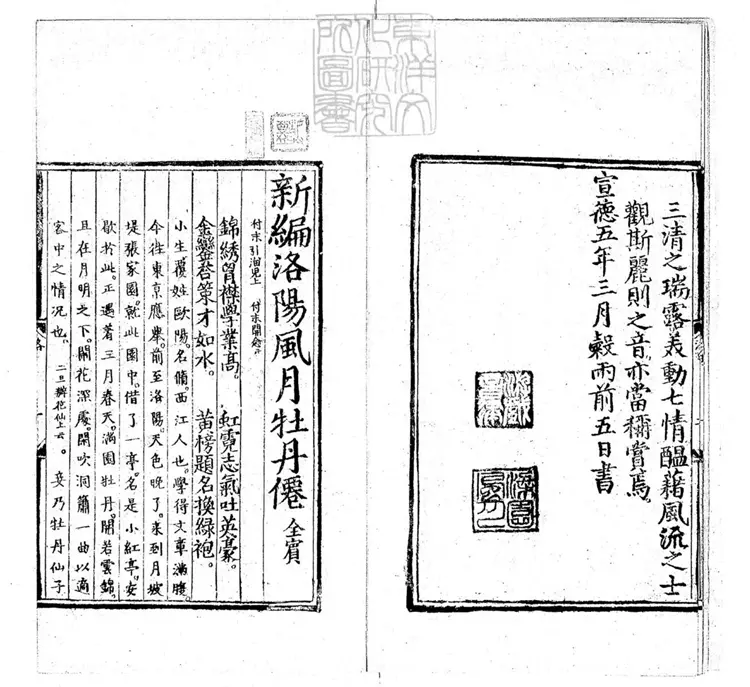 東洋文
化研究
所圖書
三清之瑞露美動七情醞藉風流之士
觀斯麗則之音亦當稱賞焉
宣德五年三月穀雨前五日書
新編洛陽風月牡丹僊 全賓
錦綉胷襟學業高。 虹霓志氣吐英豪。
金鑾答策才如水。 黃榜題名換綠袍。
小生覆姓歐陽。名脩。西江人也。學得文章滿腹
今往東京應舉。前至洛陽。天色晚了。來到月坡
堤張家園。就此園中。借了一亭。名是小紅亭。安
歇於此。正遇着三月春天。滿園牡丹。開若雲錦。
且在月明之下。開花深處。閑吹洞簫一曲以適
客中之情况也。 二旦辦花仙上云。 妾乃牡丹仙子